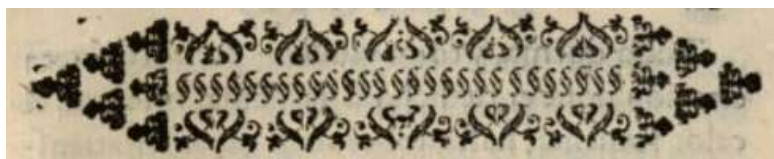 §§§§§§§§§§§§§§§§§§§§§§§§§§§